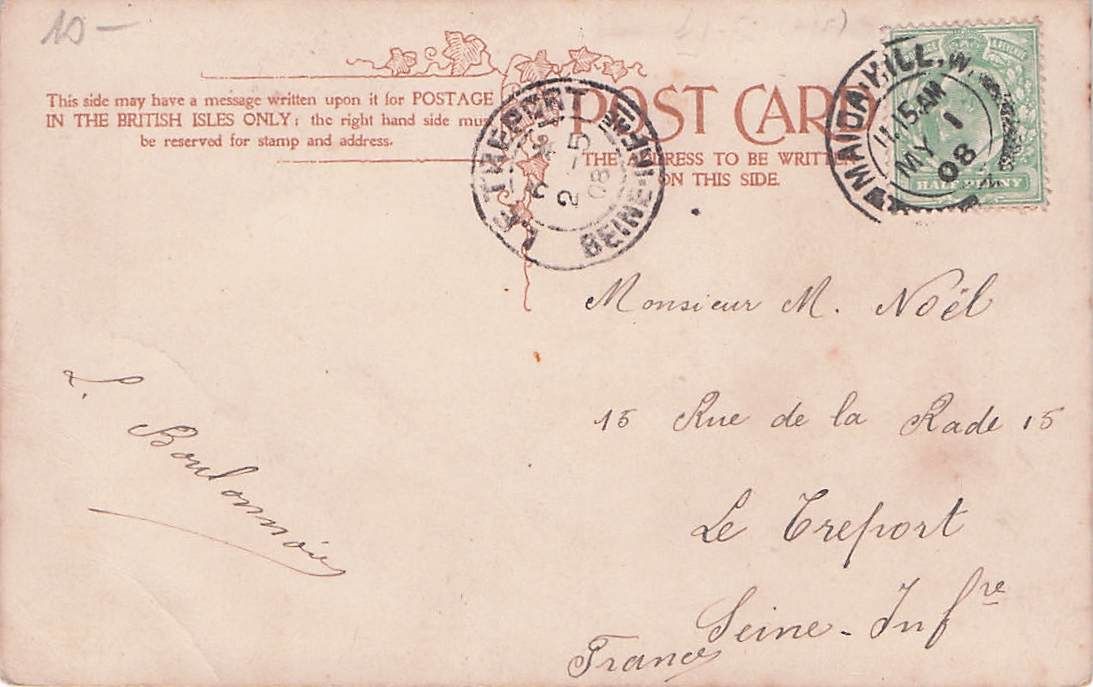 10-
This side may have a message written upon it for POSTAGE
IN THE BRITISH ISLES ONLY; the right hand side must
be reserved for stamp and address.
POST CARD
THE ADDRESS TO BE WRITTEN
ON THIS SIDE.
LE TREPORT
2 - 5
08
SEINE-INFRE
MAIDA HILL. W.
11.15 AM
MY 1
08
HALFPENNY
Monsieur M. Noël
15 Rue de la Rade 15
Le Treport
Seine-Infre
France
L. Boulonnois